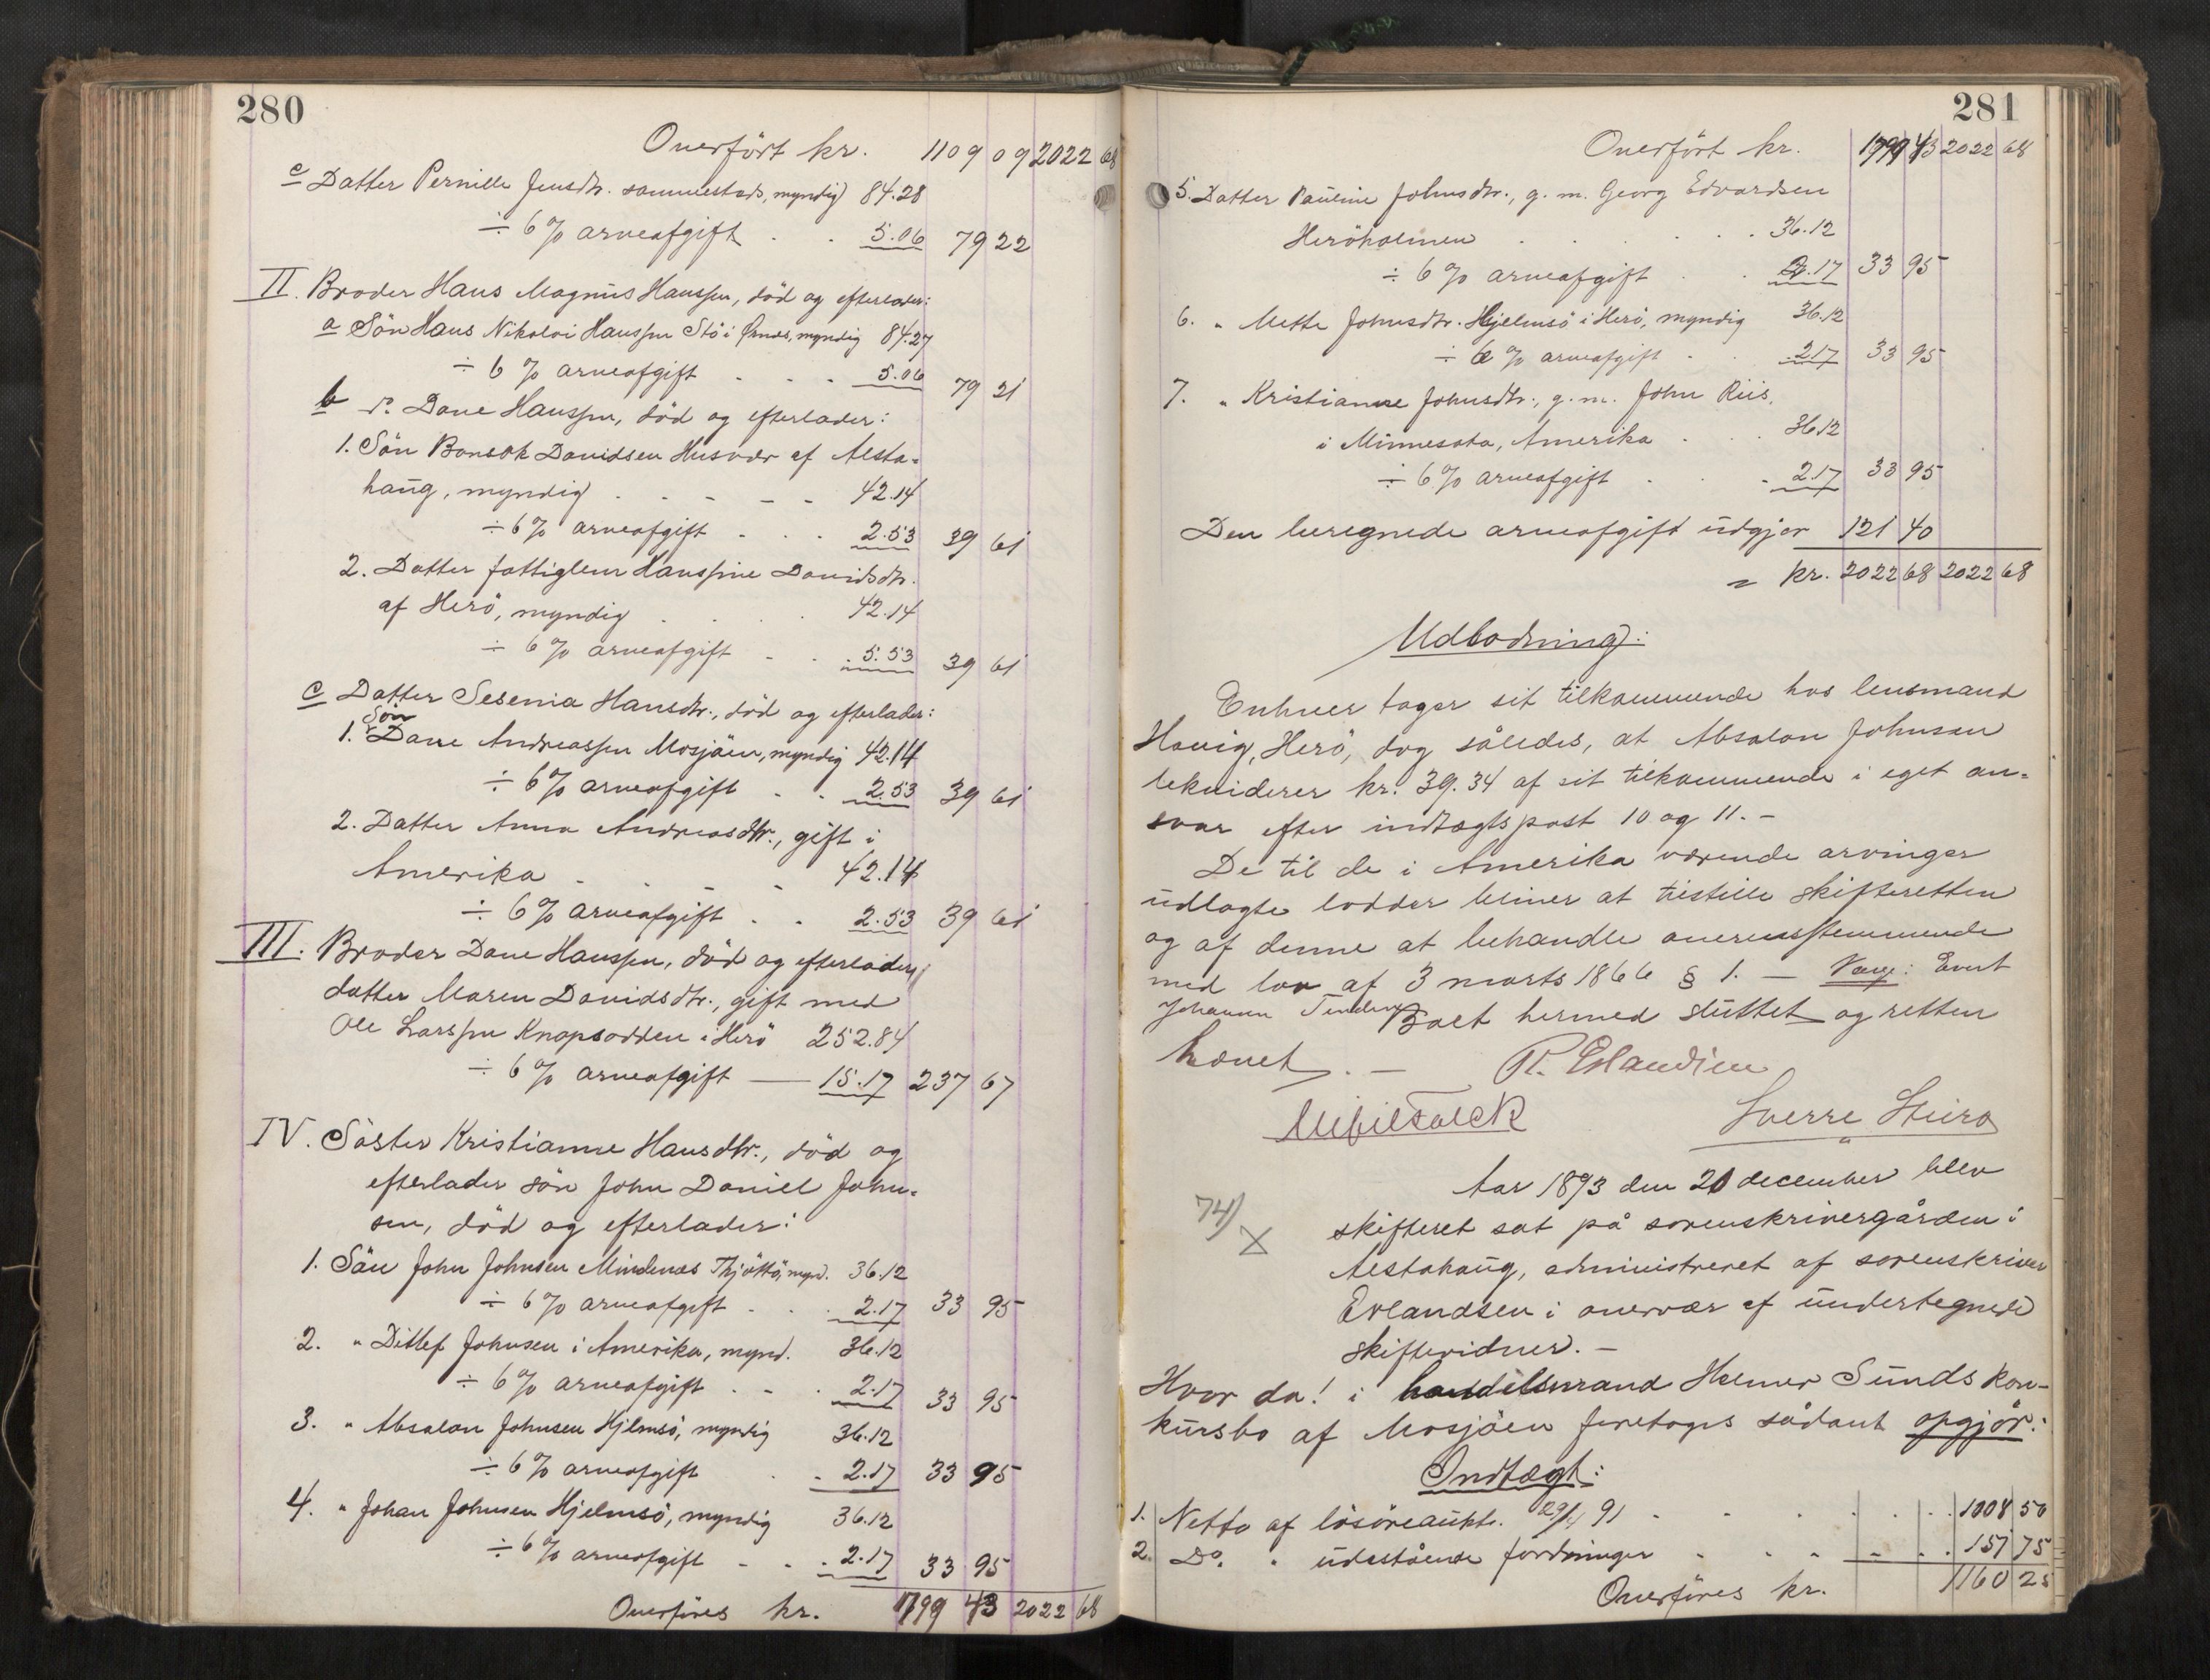 280
Overført kr. 1109 09 2022 68
c Datter Pernille Jensdtr. sammestads, myndig) 84.28
÷ 6 % arveafgift . . 5.06 79 22
II. Broder Hans Magnus Hanssen, död og efterlader:
a Sön Hans Nikolai Hanssen Stö i , myndig 84.27
÷ 6 % arveafgift . . . 5.06 79 21
b do Dane Hanssen, död og efterlader:
1. Sön Bonsak Davidsen Husvær af Alsta-
haug, myndig . . . . . 42.14
÷ 6 % arveafgift . . . 2.53 39 61
2. Datter fattiglem Hanssine Davidsdtr.
af Herö, myndig . . . . 42.14
÷ 6 % arveafgift . . . 5.53 39 61
c Datter Sesenia Hansdtr., död og efterlader:
Sön
1. Dane Andreassen Mosjöen, myndig 42.14
÷ 6 % arveafgift . . 2.53 39 61
2. Datter Anna Andreasdtr., gift i
Amerika . . . . 42.14
÷ 6 % arveafgift . . 2.53 39 61
III. Broder Dane Hanssen, död og efterlader
datter Maren Davidsdtr., gift med
Ole Larssen Knapsodden i Herö 252.84
÷ 6 % arveafgift — 15.17 237 67
IV. Söster Kristianne Hansdtr., död og
efterlader sön John Daniel John-
sen, död og efterlader:
1. Sön John Johnsen Mindenæs Thjöttö, mynd. 36.12
÷ 6 % arveafgift . . . 2.17 33 95
2. " Ditlef Johnsen i Amerika, mynd. 36.12
÷ 6 % arveafgift . . . 2.17 33 95
3. " Absalon Johnsen Hjelmsö, myndig 36.12
÷ 6 % arveafgift . . 2.17 33 95
4. " Johan Johnsen Hjelmsö, myndig 36.12
÷ 6 % arveafgift . . . 2.17 33 95
Overföres kr. 1799 43 2022 68
281
Overført kr. 1799 43 2022 68
5. Datter Pauline Johnsdtr., g. m. Georg Edvardsen
Heröholmen . . . . . . 36.12
÷ 6 % arveafgift . . 2.17 33 95
6. " Mette Johnsdtr. Hjelmsö i Herö, myndig 36.12
÷ 6 % arveafgift . . 2.17 33 95
7. " Kristianne Johnsdtr., g. m. John Riis,
i Minnesota, Amerika . . . 36.12
÷ 6 % arveafgift . . . 2.17 33 95
Den beregnede arveafgift udgjør 121 40
= kr. 2022 68 2022 68
Udlodning:
Enhver tager sit tilkommende hos lensmand
Havig, Herö, dog således, at Absalon Johnsen
lekviderer kr. 39.34 af sit tilkommende i eget an-
svar efter indtægtspost 10 og 11. –
De til de i Amerika værende arvinger
udlagte lodder bliver at tilstille skifteretten
og af denne at behandle overensstemmende
med lov af 3 marts 1866 § 1. –
Johanna
Boet hermed sluttet og retten
hævet. –
Sverre
Aar 1893 den 21 december blev
74)
X
skifteret sat på sorenskrivergården i
Alstahaug, administreret af sorenskriver
Erlandsen i overvær af undertegnede
skiftevidner. –
Hvor da! i handelsmand Helmer Sunds kon-
kursbo af Mosjöen foretoges sådant opgjör:
Indtægt:
1. Netto af lösöreauktn. 91 . . . . 1008 50
2. Do. " udestående fordringer . . . . 151 75
Overföres kr. 1160 25